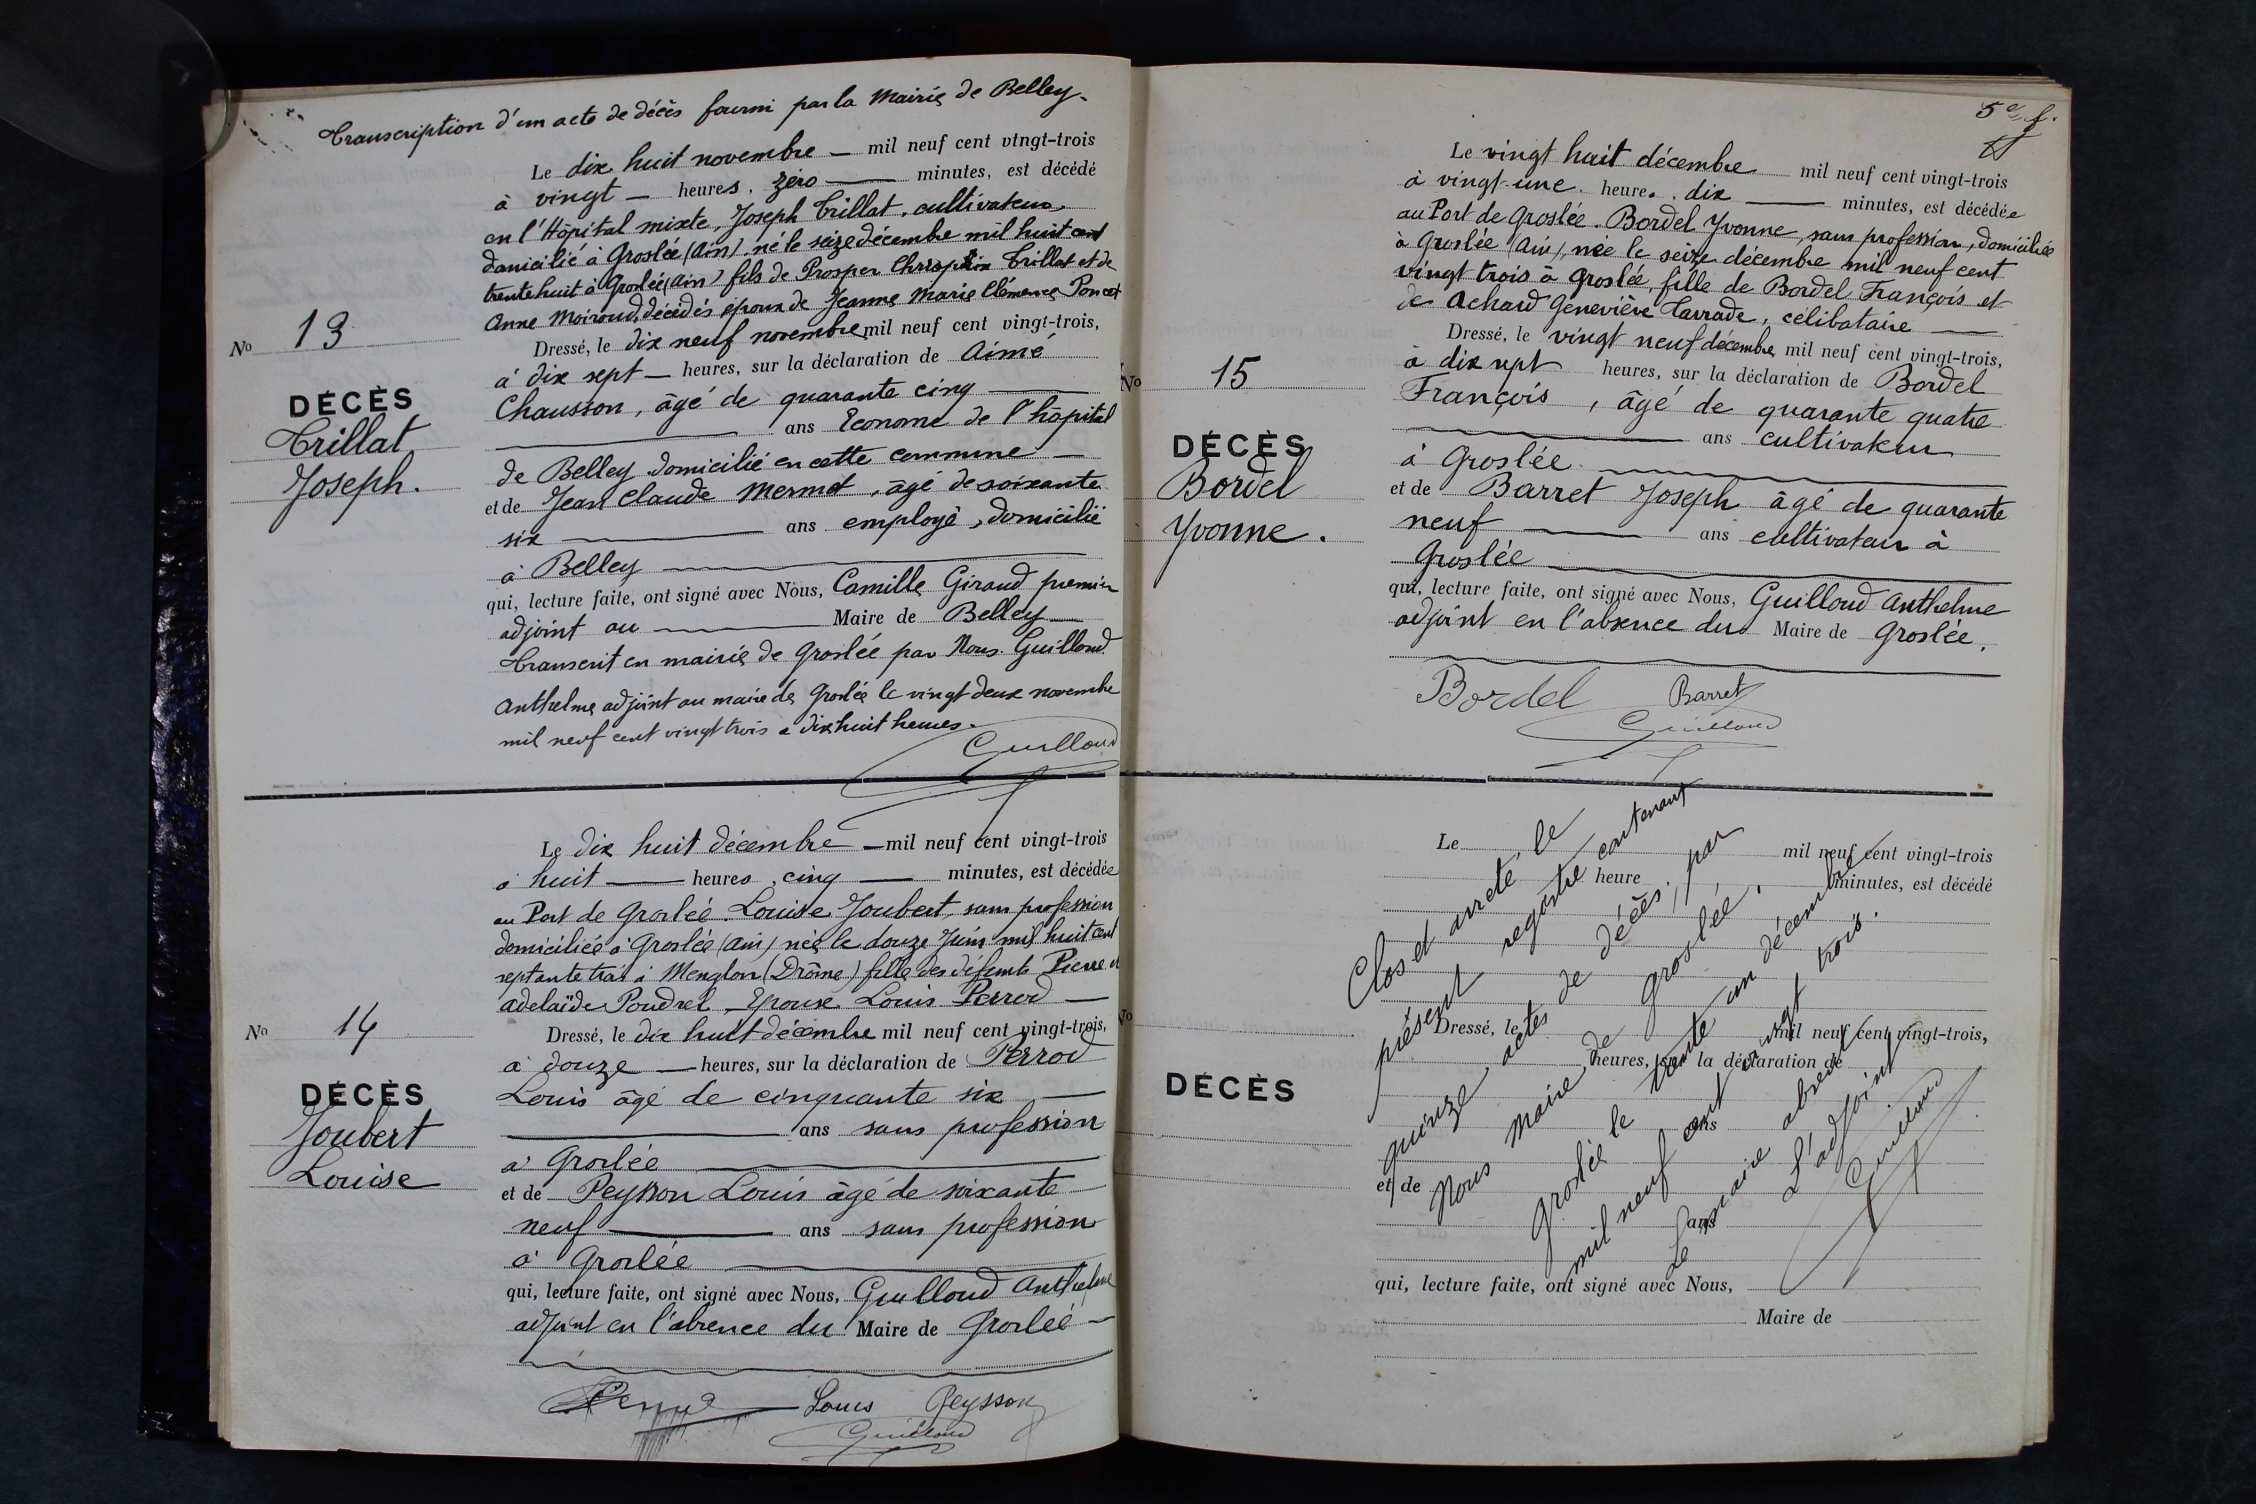 Transcription d'un acte de décès fourni par la Mairie de Belley.
Le dix huit novembre — mil neuf cent vingt-trois
à vingt — heures, zéro — minutes, est décédé
en l'Hôpital mixte, Joseph Trillat, cultivateur,
domicilié à Groslée (Ain), né le seize décembre mil huit cent
trente huit à Groslée (Ain) fils de Prosper Trillat et de
Anne Moiroud, décédés époux de Jeanne Marie Clémence Poncet
No 13
Dressé, le dix neuf novembre mil neuf cent vingt-trois,
à dix sept — heures, sur la déclaration de Aimé
DÉCÈS
Chausson, âgé de quarante cinq —
Trillat
— ans Econome de l'hôpital
Joseph.
de Belley domicilié en cette commune —
et de Jean Claude Mermet, âgé de soixante
six — ans employé, domicilié
à Belley —
qui, lecture faite, ont signé avec Nous, Camille Giraud premier
adjoint au — Maire de Belley —
Transcrit en mairie de Groslée par Nous Guilloud
Anthelme adjoint au maire de Groslée le vingt deux novembre
mil neuf cent vingt trois à dix huit heures.
Guilloud
Le dix huit décembre — mil neuf cent vingt-trois
à huit — heures, cinq — minutes, est décédée
au Port de Groslée. Louise Joubert, sans profession
domiciliée à Groslée (Ain) née le douze Juin mil huit cent
septante trois à Menglon (Drôme) fille des défunts Pierre et
Adelaïde Poudrel, Epouse Louis Perrod —
No 14
Dressé, le dix huit décembre mil neuf cent vingt-trois,
à douze — heures, sur la déclaration de Perrod
DÉCÈS
Louis âgé de cinquante six —
Joubert
— ans sans profession
Louise
à Groslée —
et de Peysson Louis âgé de soixante
neuf — ans sans profession
à Groslée —
qui, lecture faite, ont signé avec Nous, Guilloud Anthelme
adjoint en l'absence du Maire de Groslée —
Louis Peysson
Guilloud
5e f.
Le vingt huit décembre mil neuf cent vingt-trois
à vingt-une heure. dix — minutes, est décédée
au Port de Groslée. Bordel Yvonne, sans profession, domiciliée
à Groslée (Ain), née le seize décembre mil neuf cent
vingt trois à Groslée, fille de Bordel François et
de Achard Geneviève Tarrade, célibataire —
Dressé, le vingt neuf décembre mil neuf cent vingt-trois,
No 15
à dix sept heures, sur la déclaration de Bordel
François, âgé de quarante quatre
DÉCÈS
— ans cultivateur
Bordel
à Groslée. —
Yvonne.
et de Barret Joseph âgé de quarante
neuf — ans cultivateur à
Groslée —
qui, lecture faite, ont signé avec Nous, Guilloud Anthelme
adjoint en l'absence du Maire de Groslée.
Bordel Barret
Guilloud
Le mil neuf cent vingt-trois
heure minutes, est décédé
No
Dressé, le mil neuf cent vingt-trois,
heures, sur la déclaration de
DÉCÈS
ans
et de
ans
qui, lecture faite, ont signé avec Nous,
Maire de
Clos et arrêté, le
présent registre contenant
quinze actes de décès, par
Nous Maire de Groslée.
Groslée le trente un décembre
mil neuf cent vingt trois.
Le maire absent
L'adjoint
Guilloud